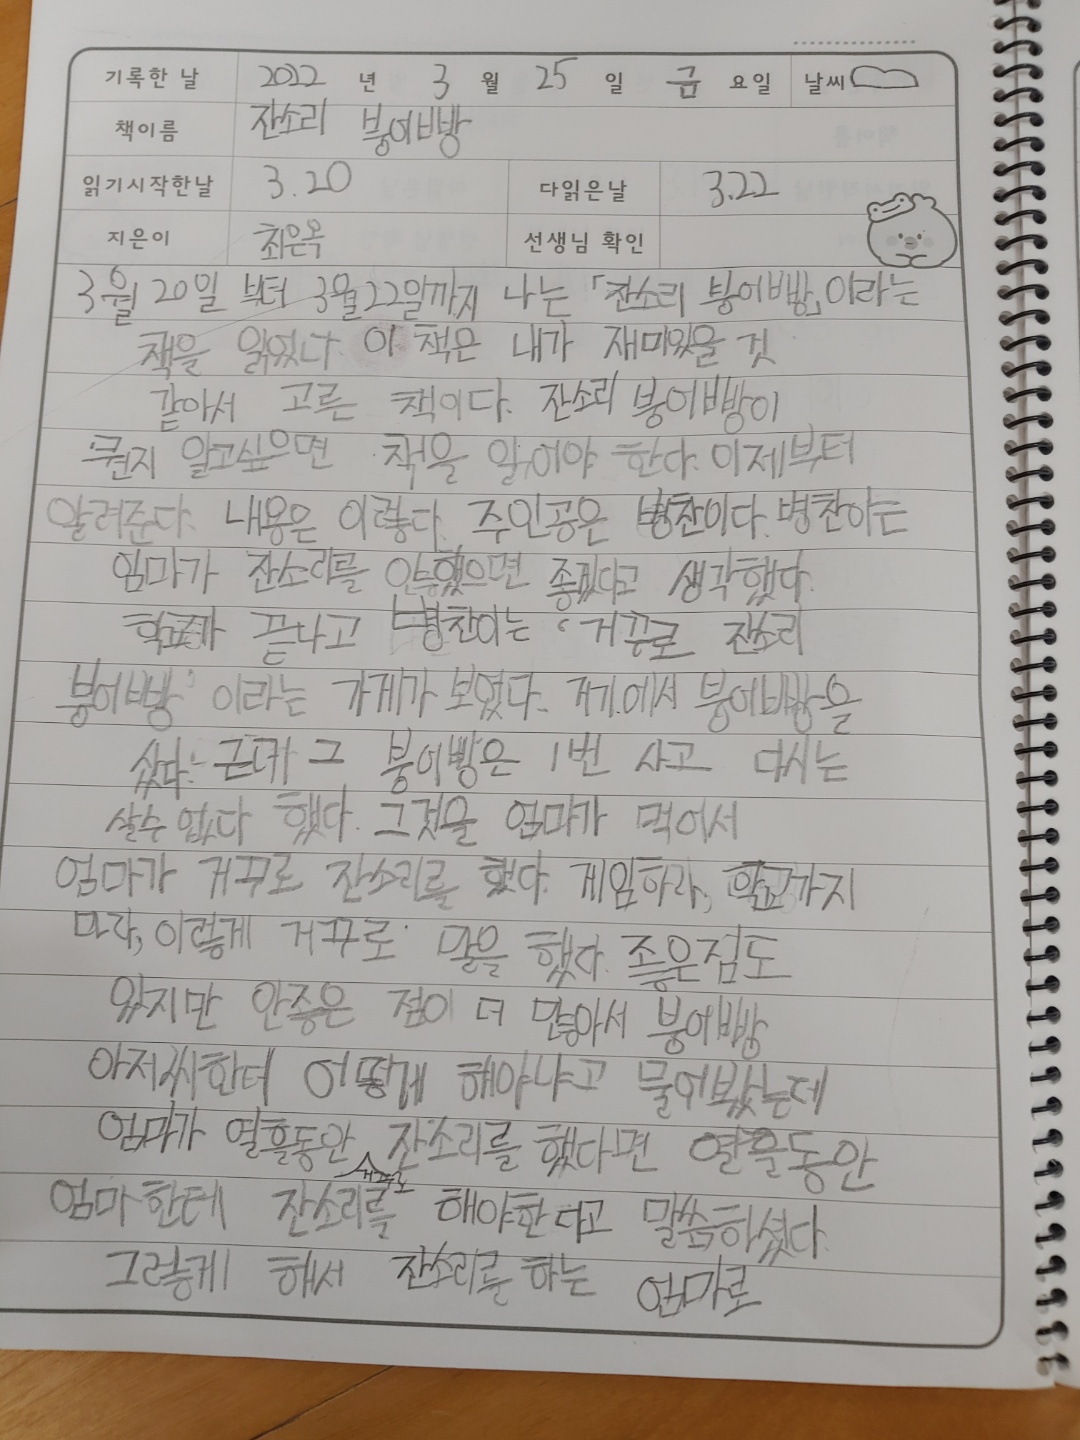 기록한 날 2022 년 3 월 25 일 금 요일 날씨
책이름 잔소리 붕어빵
읽기시작한날 3.20 다읽은날 3.22
지은이 최은옥 선생님 확인
3월 20일 부터 3월 22일까지 나는 「잔소리 붕어빵」이라는
책을 읽었다. 이 책은 내가 재미있을 것
같아서 고른 책이다. 잔소리 붕어빵이
뭔지 알고싶으면 책을 읽어야 한다. 이제부터
알려준다. 내용은 이렇다. 주인공은 병찬이다. 병찬이는
엄마가 잔소리를 안했으면 좋겠다고 생각했다.
학교가 끝나고 병찬이는 '거꾸로 잔소리
붕어빵' 이라는 가게가 보였다. 거기에서 붕어빵을
샀다. 근데 그 붕어빵은 1번 사고 다시는
살수 없다 했다. 그것을 엄마가 먹어서
엄마가 거꾸로 잔소리를 했다. 게임하라, 학교가지
마라, 이렇게 거꾸로 말을 했다. 좋은점도
있지만 안좋은 점이 더 많아서 붕어빵
아저씨한터 어떻게 해야냐고 물어봤는데
엄마가 열흘동안 잔소리를 했다면 열흘동안
거꾸로
엄마한테 잔소리를 해야한다고 말씀하셨다.
그렇게 해서 잔소리를 하는 엄마로